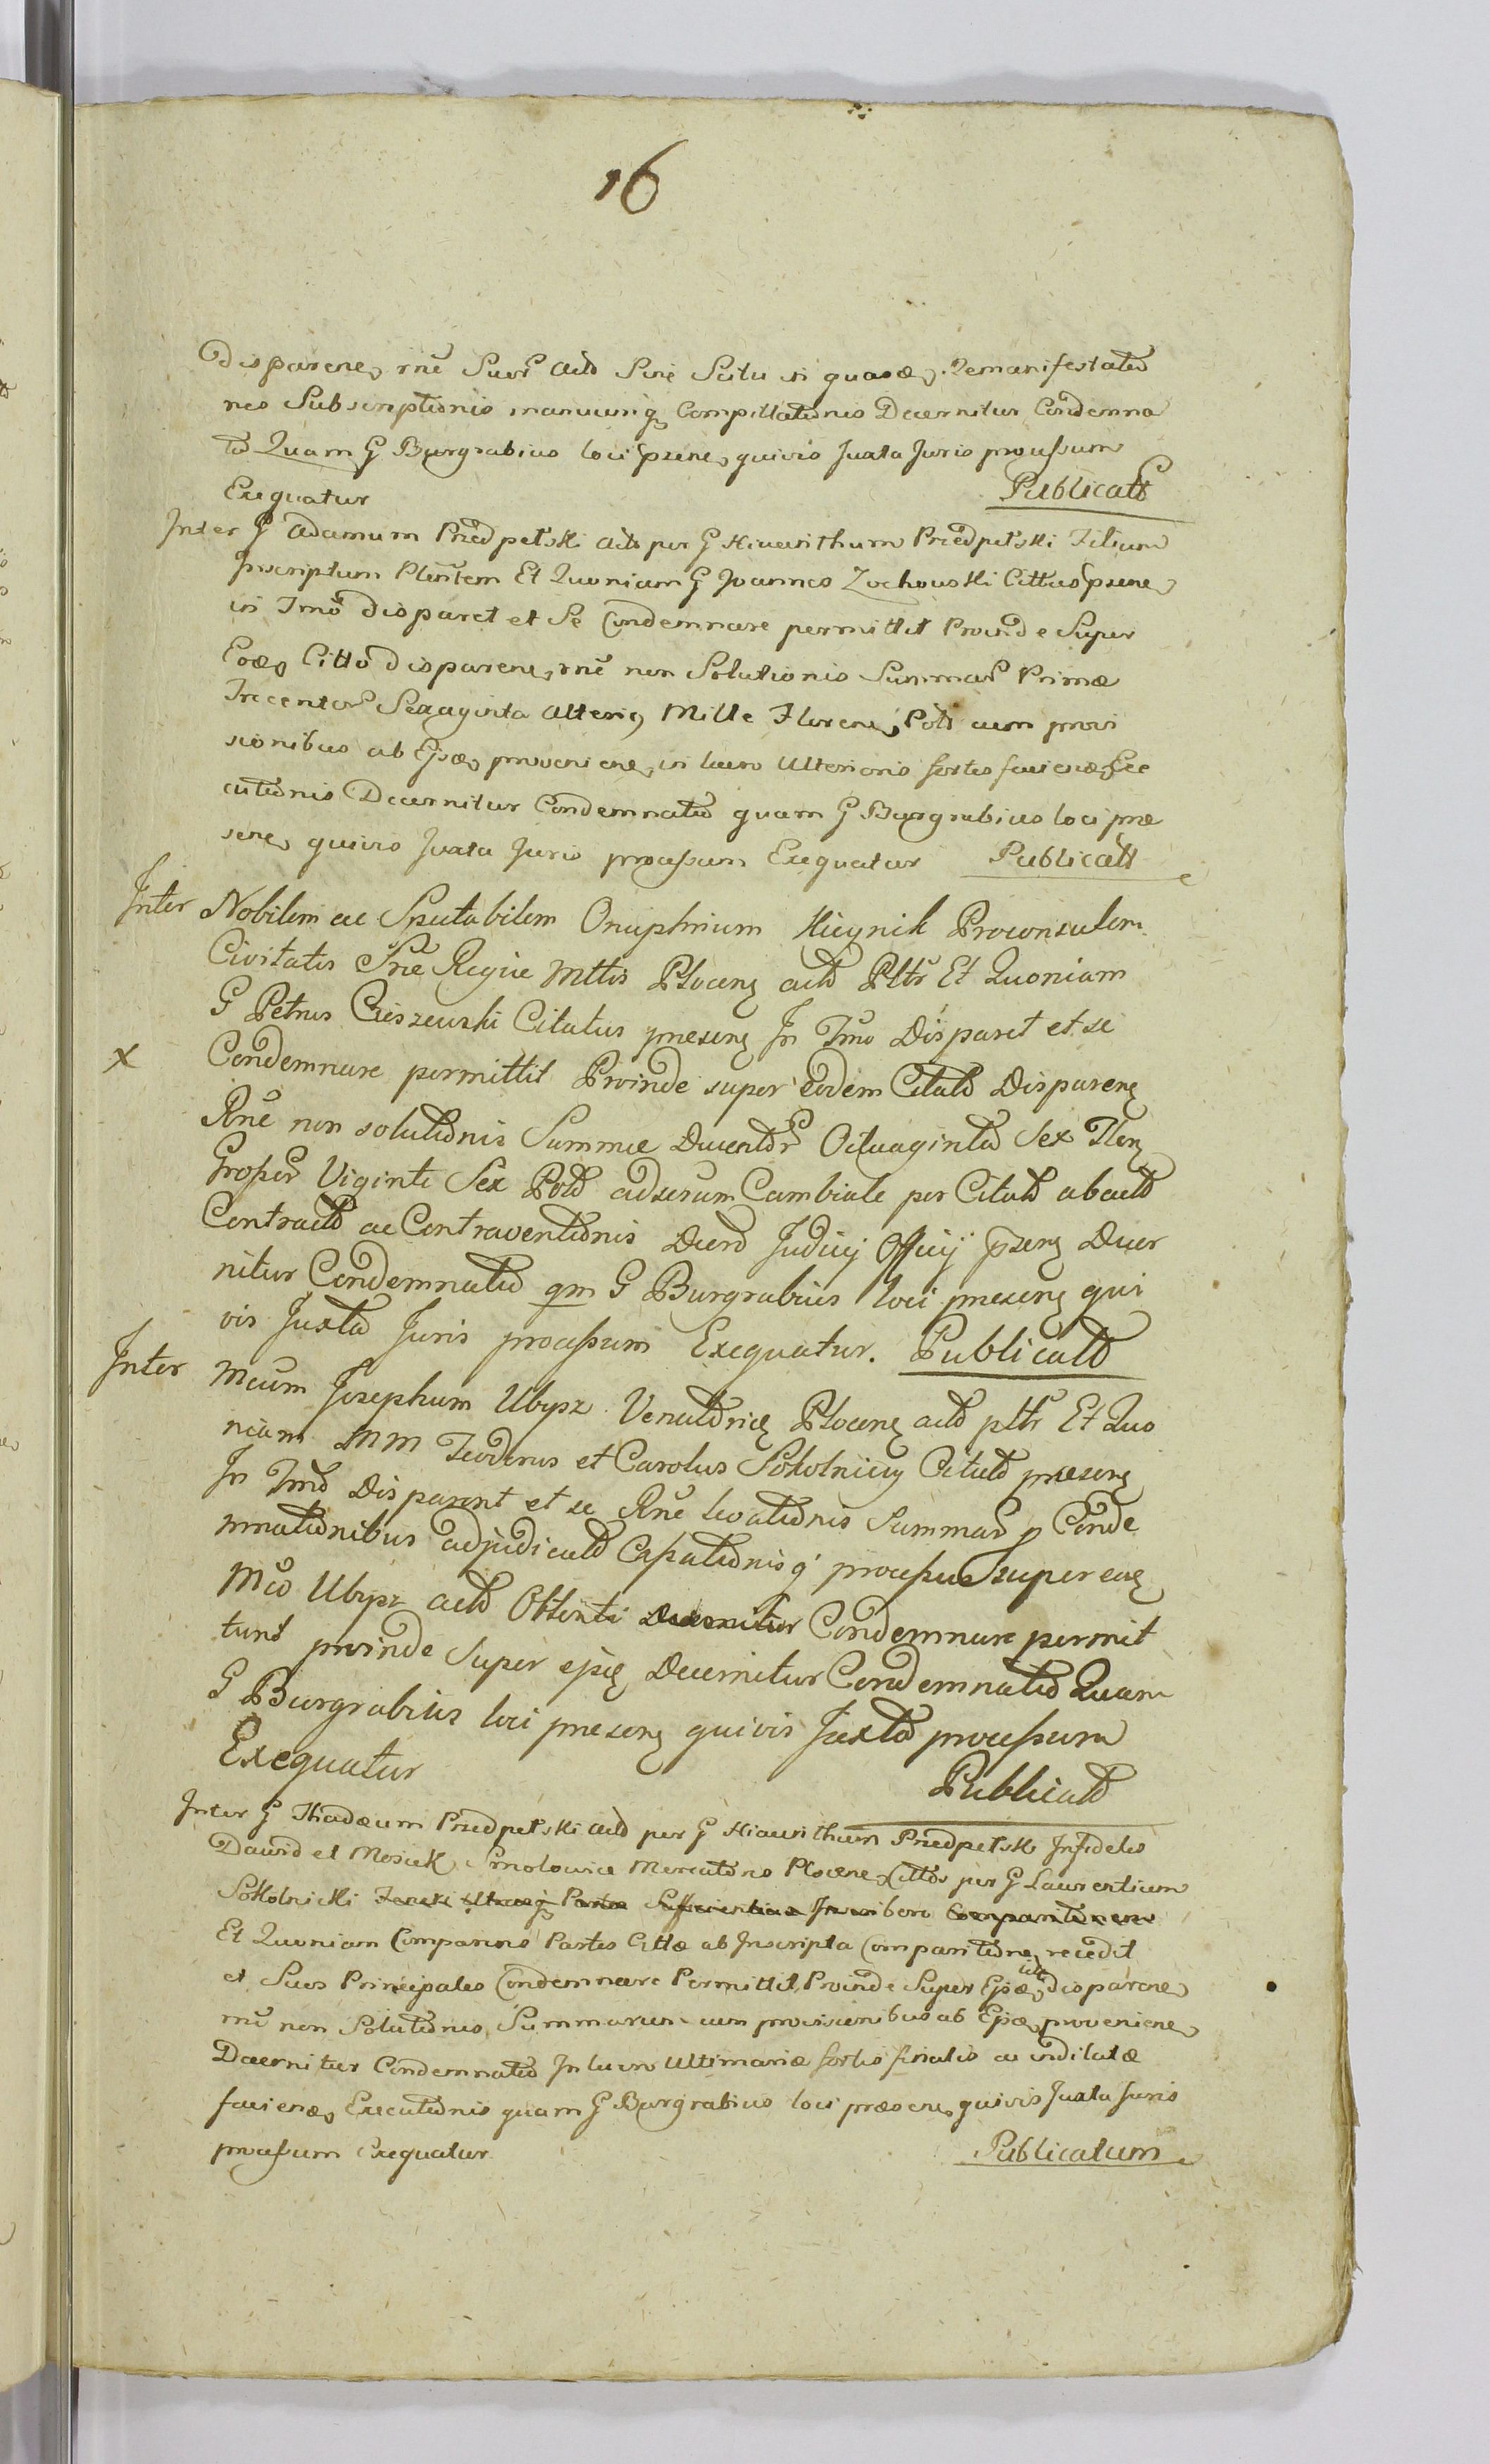 16
Disparenę rnē Suor Actō Sine Scitu in quasdę Remanifestatio
nes Subscriptionis manuumq Compillationis Decernitur Condemna
to Quam G Burgrabius loci psenę quivis Juxta Juris processum
Exequatur Publicatt
Inter G Adamum Przedpelski Actō per G Hiacinthum Przedpelski Filium
Inscriptum Plentem Et Quoniam G Joannes Zochowski Cittus psenę
in Tmō disparet et Se Condemnare permittit Proinde Super
Eodę Cittō disparenę rnē non Solutionis Summar Primæ
Trecentor Sexaginta Alterię Mille Florenę Polł cum provi
sionibus ab Ejsdę provenienę in lucro Ulterioris sortis faciendę Exe
cutionis Decernitur Condemnatio quam G Burgrabius loci præ
senę quivis Juxta Juris processum Exequatur Publicatt
Inter Nobilem ac Spectabilem Onuphrium Kicynik Proconsulem
Civitatis Srae Regiae Mttis Plocenę actō Pltr Et Quoniam
G Petrus Cieszewski Citatus presenę In Tmo Disparet et se
x Condemnare permittit Proinde super eodem Citatō Disparenę
Rnē non solutionis Summae Ducentor Octuaginta Sex Flenę
Grossor Viginti Sex Polō adserum Cambiale per Citatō ab actō
Contractō ac Contraventionis Decrō Judicij Officij psenę Decer
nitur Condemnatio qm G Burgrabius loci presenę qui
vis Juxta Juris processum Exequatur. Publicatō
Inter Mcum Josephum Ubysz Venatōricę Plocenę actō pltr Et Quo
niam MM Teodorus et Carolus Sokolniccy Citatō presenę
In Tmō Disparent et se Rnē levationis Summar p Conde
mnationibus adjudicatō Cassationisq processus super eaę
Mcō Ubysz actō Obtenti Decernitur Condemnare permit
tunt proinde super ejsdę Decernitur Condemnatio Quam
G Burgrabius loci presenę quivis Juxta processum
Exequatur Publicatō
Inter G Thadæum Przedpelski Actō per G Hiacinthum Przedpelski Infideles
Dawid et Mosiek Smolowicz Mercatōres Plocenę Cittōs per G Laurentium
Sokolnicki Inscribere
Et Quoniam Comparens Partes Cittæ ab Inscripta Comparitione recedit
et Suos Principales Condemnare Permittit, Proinde Super Ejsdę citt disparenę
rnē non Solutionis Summarum cum provisionibus ab Ejsdę provenienę
Decernitur Condemnatio In lucro Ultimariæ sortis finalis ac indilatæ
faciendę Executionis quam G Burgrabius loci præsenę quivis Juxta Juris
processum Exequatur Publicatum